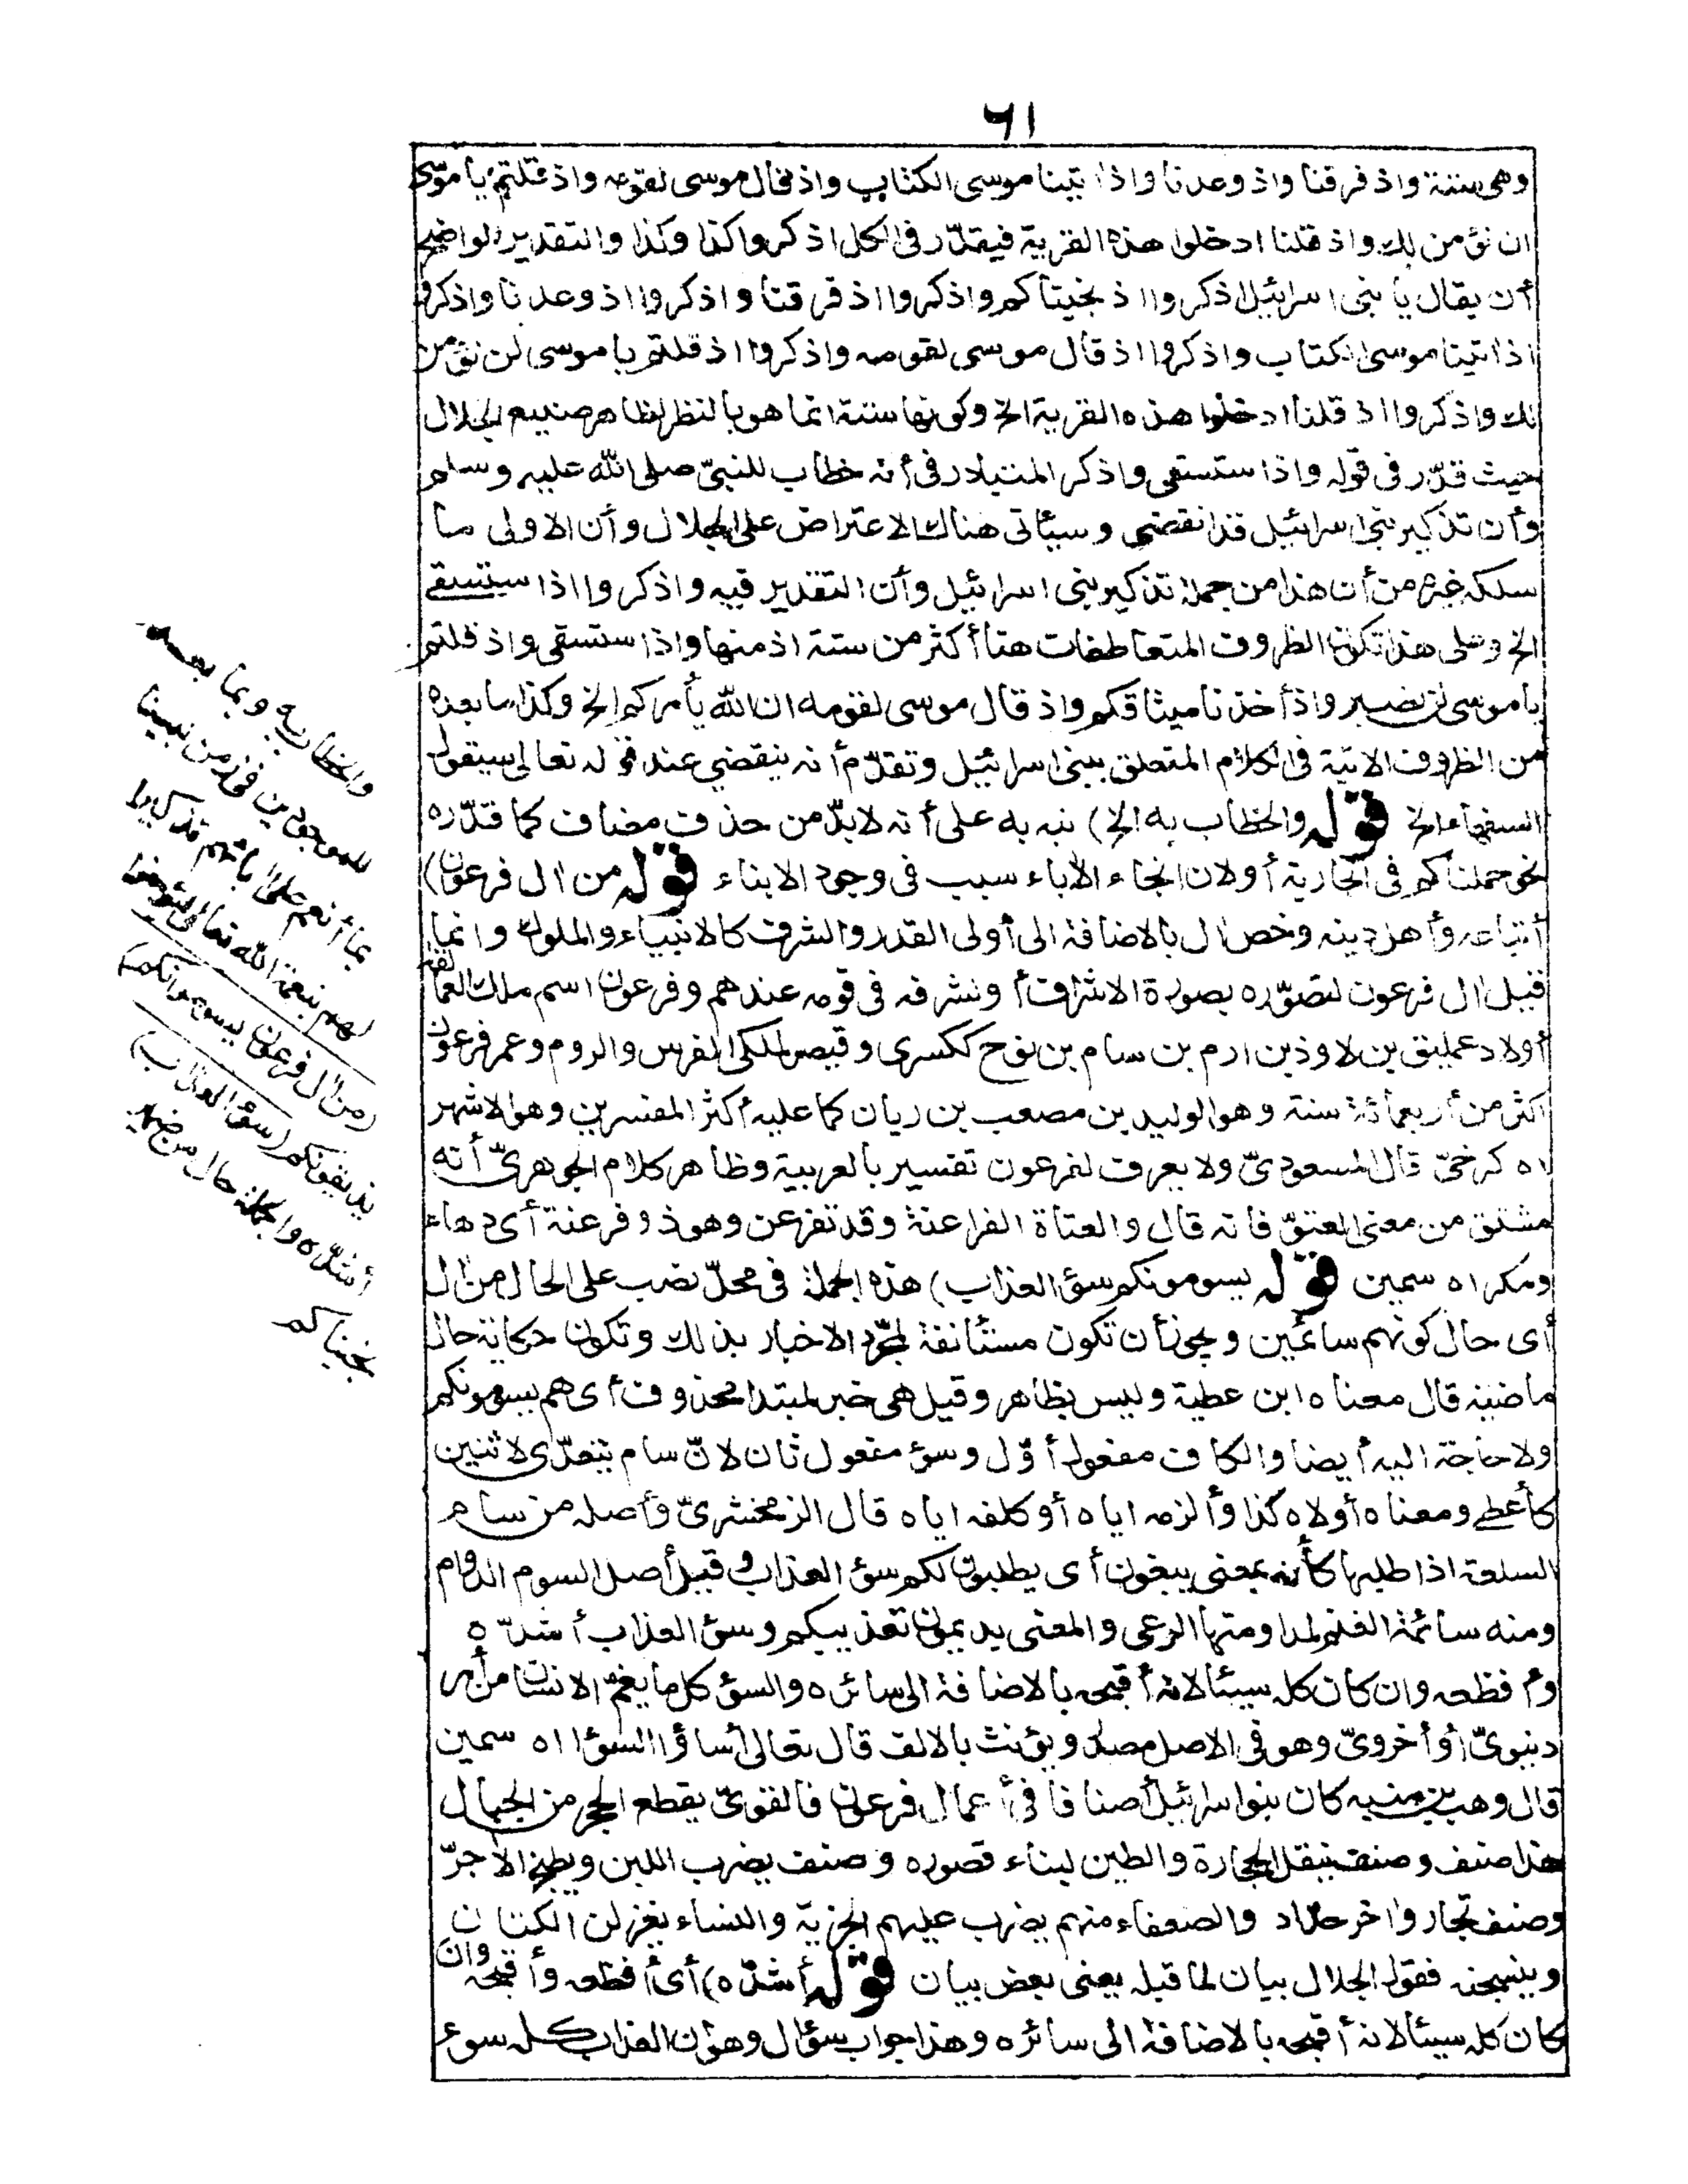 ٦١
وهى ستة واذ فرقنا واذ وعدنا واذ اتينا موسى الكتاب واذ قال موسى لقومه واذ قلتم يا موسى
لن نؤمن لك واذ قلنا ادخلوا هذه القرية فيقدّر فى الكل اذكروا كذا وكذا والتقدير الواضح
أن يقال يا بنى اسرائيل اذكروا اذ نجيناكم واذكروا اذ فرقنا واذكروا اذ وعدنا واذكروا
اذ اتينا موسى الكتاب واذكروا اذ قال موسى لقومه واذكروا اذ قلتم يا موسى لن نؤمن
لك واذكروا اذ قلنا ادخلوا هذه القرية الخ وكونها ستة انما هو بالنظر لظاهر صنيع الجلال
حيث قدّر فى قوله واذ استسقى واذكر المتبادر فى أنه خطاب للنبىّ صلى الله عليه وسلم
وأن تذكير بنى اسرائيل قد انقضى وسيأتى هناك الاعتراض على الجلال وأن الاولى ما
سلكه غيره من أن هذا من جملة تذكير بنى اسرائيل وأن التقدير فيه واذكروا اذ استسقى
الخ وعلى هذا تكون الظروف المتعاطفات هنا أكثر من ستة اذ منها واذ استسقى واذ قلتم
يا موسى لن نصبر واذ أخذنا ميثاقكم واذ قال موسى لقومه ان الله يأمركم الخ وكذا ما بعده
من الظروف الاتية فى الكلام المتعلق ببنى اسرائيل وتقدّم أنه ينقضي عند قوله تعالى سيقول
السفهاء الخ قوله والخطاب به الخ) نبه به على أنه لابدّ من حذف مضاف كما قدّره
نحو حملناكم فى الجارية أو لان انجاء الأباء سبب فى وجود الابناء قوله من ال فرعون)
أتباعه وأهل دينه وخص ال بالاضافة الى أولى القدر والشرف كالانبياء والملوك وانما
قيل ال فرعون لتصوّره بصورة الاشراف أو لشرفه فى قومه عندهم وفرعون اسم ملك العمالقة
أولاد عمليق بن لاوذ بن ارم بن سام بن نوح ككسرى وقيصر لملكى الفرس والروم وعمر فرعون
اكثر من أربعمائة سنة وهو الوليد بن مصعب بن ريان كما عليه أكثر المفسرين وهو الاشهر
اه كرخىّ قال المسعودىّ ولا يعرف لفرعون تفسير بالعربية وظاهر كلام الجوهرىّ أنه
مشتق من معنى العتوّ فانه قال والعتاة الفراعنة وقد تفرعن وهو ذو فرعنة أى دهاء
ومكر اه سمين قوله يسومونكم سؤ العذاب) هذه الجملة فى محلّ نصب على الحال من ال
أى حال كونهم سائمين ويجوز أن تكون مستأنفة لمجرّد الاخبار بذلك وتكون حكاية حال
ماضية قال معناه ابن عطية وليس بظاهر وقيل هى خبر لمبتدا محذوف أى هم يسومونكم
ولا حاجة اليه أيضا والكاف مفعول أوّل وسؤ مفعول ثان لانّ سام يتعدّى لاثنين
كأعطى ومعناه أولاه كذا وألزمه اياه أو كلفه اياه قال الزمخشرىّ وأصله من سام
السلعة اذا طلبها كأنه بمعنى يبغون أى يطلبون لكم سؤ العذاب وقيل أصل السوم الدوام
ومنه سائمة الغنم لمداومتها الرعى والمعنى يديمون تعذيبكم وسؤ العذاب أشدّه
وأفظعه وان كان كله سيئا لانه أقبحه بالاضافة الى سائره والسؤ كل ما يغمّ الانسان من أمر
دنيوىّ أو أخروىّ وهو فى الاصل مصدر ويؤنث بالالف قال تعالى أساؤا السؤا اه سمين
قال وهب بن منبه كان بنوا سرائيل أصنافا فى أعمال فرعون فالقوىّ يقطع الحجر من الجبال
هذا صنف وصنف ينقل الحجارة والطين لبناء قصوره وصنف يضرب اللبن ويطبخ الأجرّ
وصنف نجار واخر حدّاد والضعفاء منهم يضرب عليهم الجزية والنساء يغزلن الكتان
وينسجنه فقول الجلال بيان لما قبله يعنى بعض بيان قوله أشدّه) أى أفظعه وأقبحه وان
كان كله سيئا لانه أقبحه بالاضافة الى سائره وهذا جواب سؤال وهو أن العذاب كله سوء
والخطاب به وبما بعده
للموجودين فى زمن نبينا
بما أنعم على ابائهم تذكيرا
لهم بنعمة الله تعالى ليؤمنوا
(من ال فرعون يسومونكم)
يذيقونكم (سؤ العذاب)
أشدّه والجملة حال من ضمير
نجيناكم